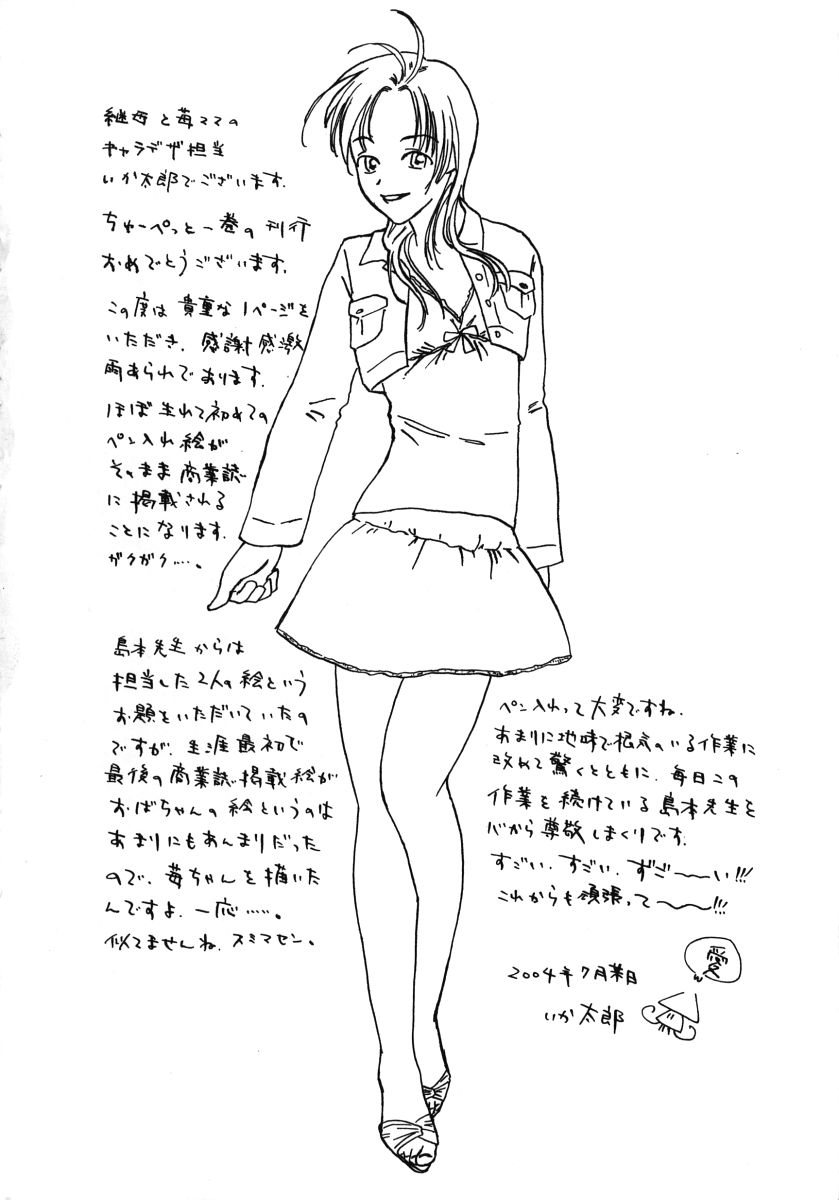 継母と苺ママの
キャラデザ担当
いか太郎でございます.
ちゅーぺっと一巻の刊行
おめでとうございます.
この度は貴重な1ページを
いただき、感謝感激
雨あられであります.
ほぼ生れて初めての
ペン入れ絵が
そのまま商業誌
に掲載される
ことになります.
ガクガク….。
島本先生からは
担当した2人の絵という
お題をいただいていたの
ですが、生涯最初で
最後の商業誌掲載絵が
おばちゃんの絵というのは
あまりにもあんまりだった
ので、苺ちゃんを描いた
んですよ、一応……。
似てませんね、スミマセン。
ペン入れって大変ですね.
あまりに地味で根気のいる作業に
改めて驚くとともに、毎日この
作業を続けている島本先生を
心から尊敬しまくりです.
すごい、すごい、ずご〜〜い!!!
これからも頑張って〜〜!!!
愛
2004年7月某日
いか太郎